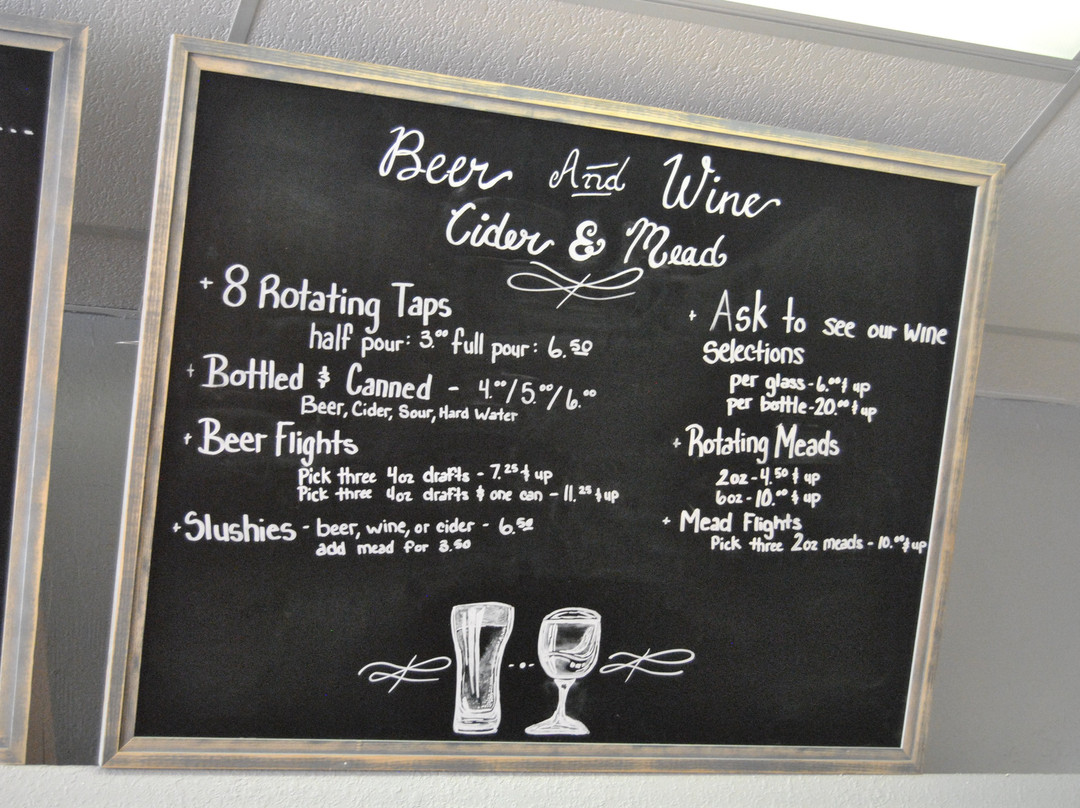 Beer And Wine
Cider & Mead
+ 8 Rotating Taps
half pour: 3.00 full pour: 6.50
+ Bottled & Canned - 4.00/5.00/6.00
Beer, Cider, Sour, Hard Water
+ Beer Flights
Pick three 4oz drafts - 7.25 & up
Pick three 4oz drafts & one can - 11.25 & up
+ Slushies - beer, wine, or cider - 6.50
add mead for 3.50
+ Ask to see our wine
selections
per glass - 6.00 & up
per bottle - 20.00 & up
+ Rotating Meads
2oz - 4.50 & up
6oz - 10.00 & up
+ Mead Flights
Pick three 2oz meads - 10.00 & up